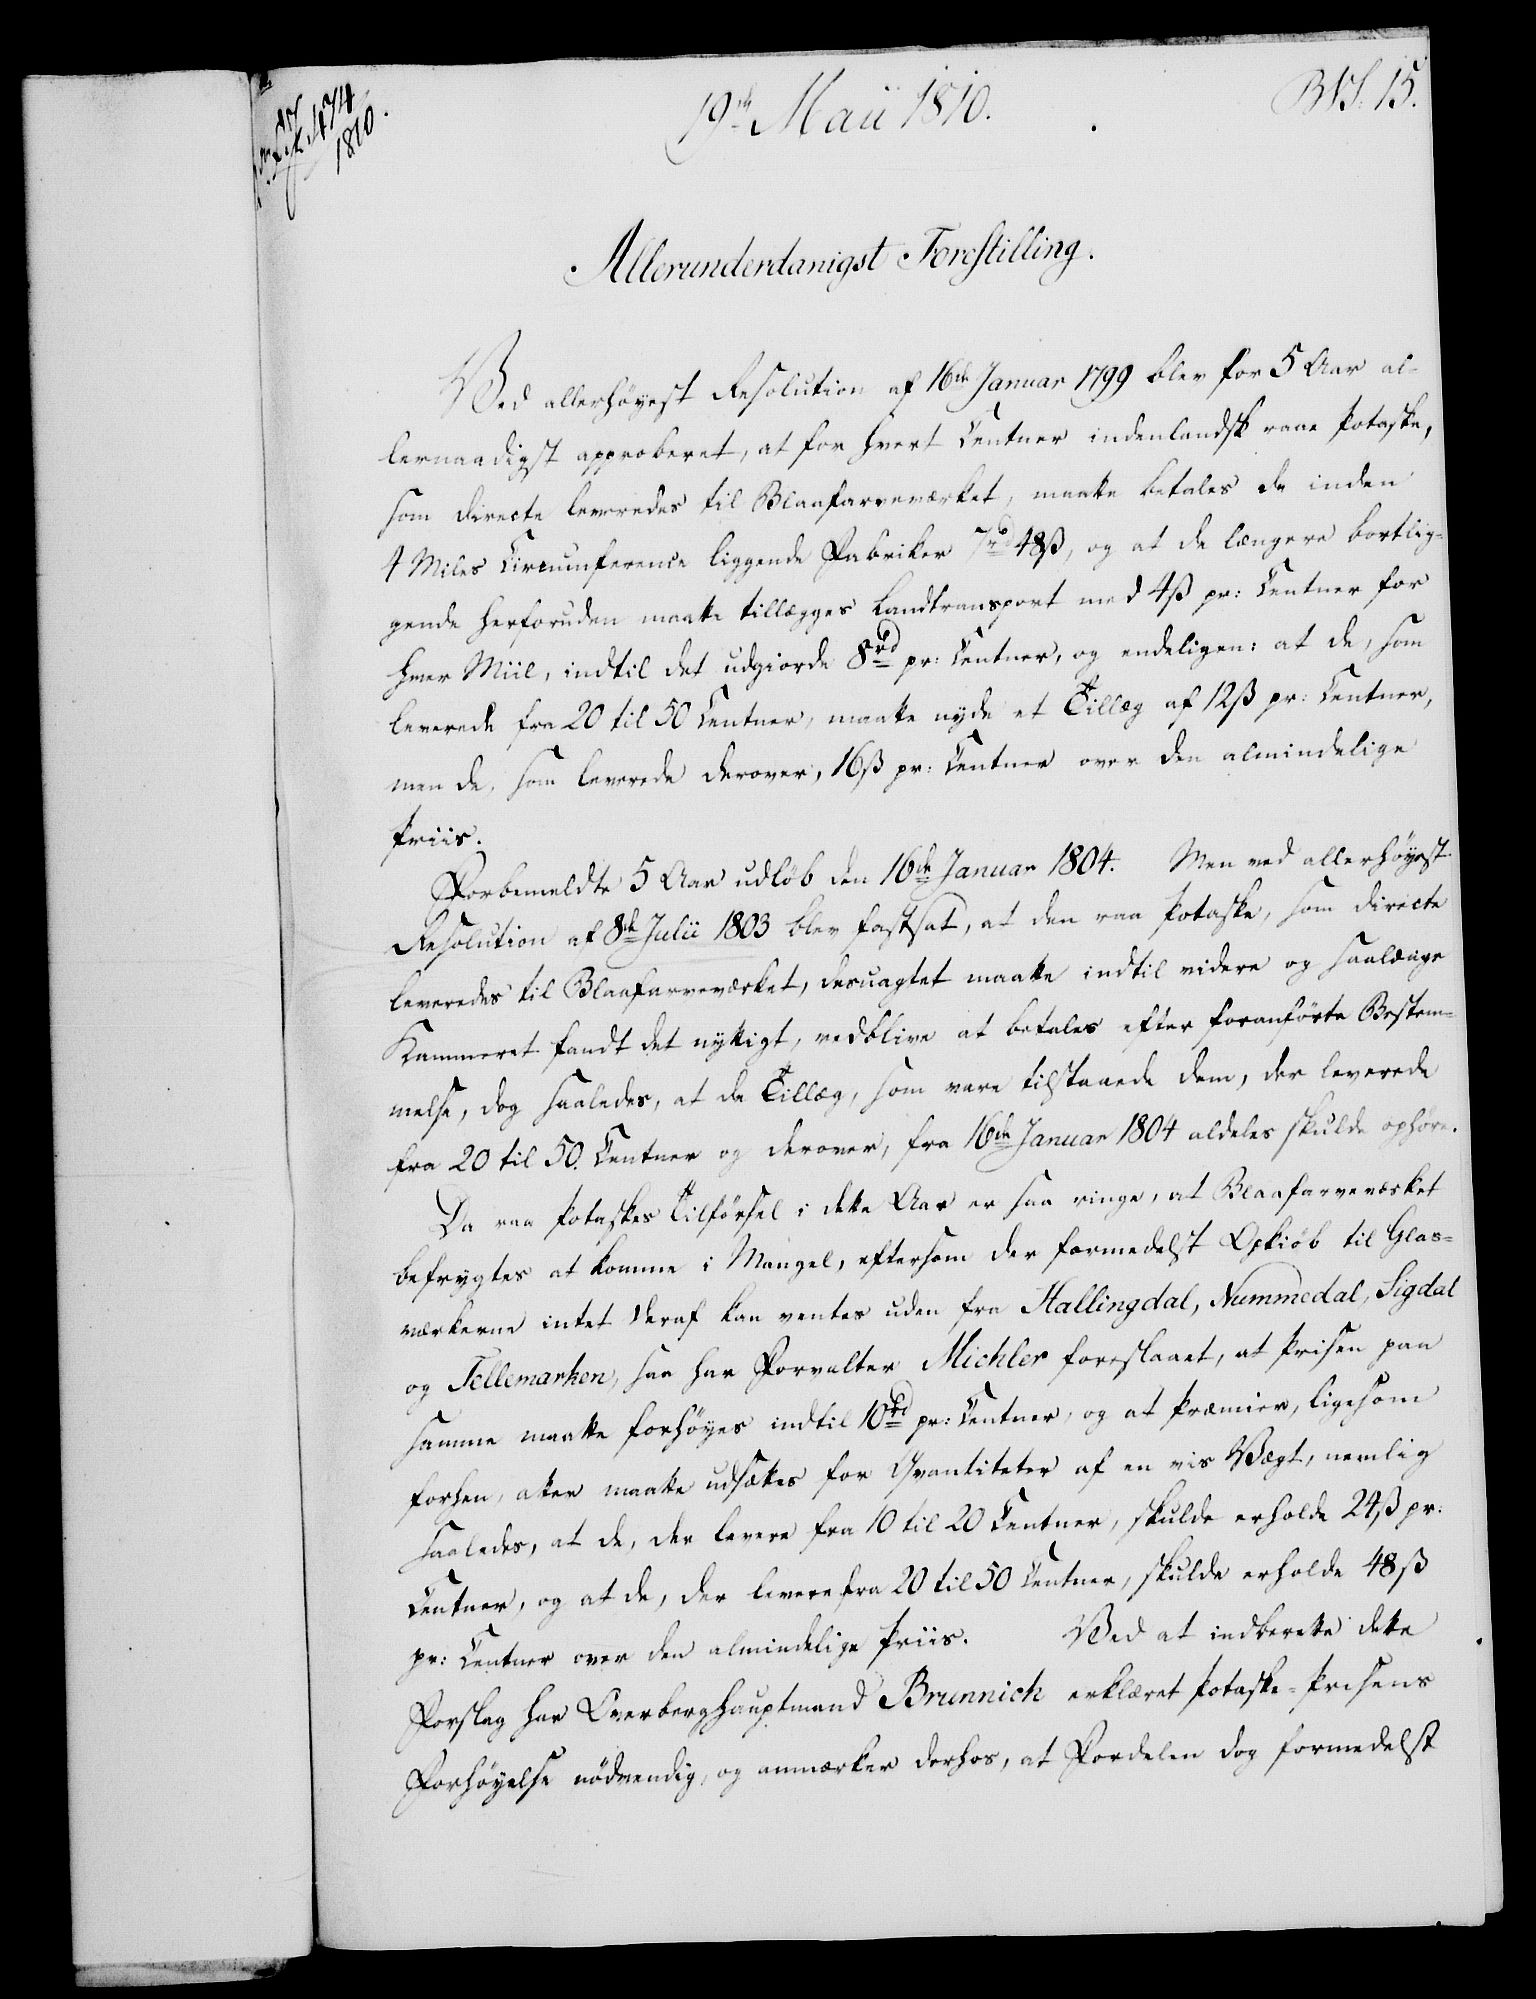 474
1810.
19de Maii 1810.
BVS. 15.
Allerunderdanigst Forestilling.
Ved allerhöyest Resolution af 16de Januar 1799 blev for 5 Aar al-
lernaadigst approberet, at for hvert Centner indenlandsk raae Potaske,
som directe leveredes til Blaafarveværket, maatte betales de inden
4 Miles Circumference liggende Fabriker 7rd 48ß, og at de længere bortlig-
gende herforuden maatte tillægges Landtransport med 4ß pr: Centner for
hver Miil, indtil det udgiorde 8rd pr: Centner, og endeligen: at de, som
leverede fra 20 til 50 Centner, maatte nyde et Tillæg af 12ß pr: Centner,
men de, som leverede derover, 16ß pr: Centner over den almindelige
Priis.
Forbemeldte 5 Aar udløb den 16de Januar 1804. Men ved allerhöyest
Resolution af 8de Julii 1803 blev fastsat, at den raa Potaske, som directe
leveredes til Blaafarveværket, desuagtet maatte indtil videre og saalænge
Kammeret fandt det nyttigt, vedblive at betales efter foranförte Bestem-
melse, dog saaledes, at de Tillæg, som vare tilstaaede dem, der leverede
fra 20 til 50. Centner og derover, fra 16de Januar 1804 aldeles skulde ophöre.
Da raa Potaskes Tilförsel i dette Aar er saa ringe, at Blaafarveværket
befrygtes at komme i Mangel, eftersom der formedelst Opkiöb til Glas-
værkerne intet deraf kan ventes uden fra Hallingdal, Nummedal, Sigdal
og Tellemarken, saa har Forvalter Michler foreslaaet, at Prisen paa
samme maatte forhöyes indtil 10rd pr: Centner, og at Præmier, ligesom
forhen, atter maatte udsættes for Qvantiteter af en vis Vægt, nemlig
saaledes, at de, der levere fra 10 til 20 Centner, skulde erholde 24ß pr:
Centner, og at de, der levere fra 20 til 50 Centner, skulde erholde 48ß
pr: Centner over den almindelige Priis. Ved at indberette dette
Forslag har Overberghauptmand Brunnich erklæret Potaske-Prisens
Forhöyelse nödvendig, og anmærker derhos, at Fordelen dog formedelst